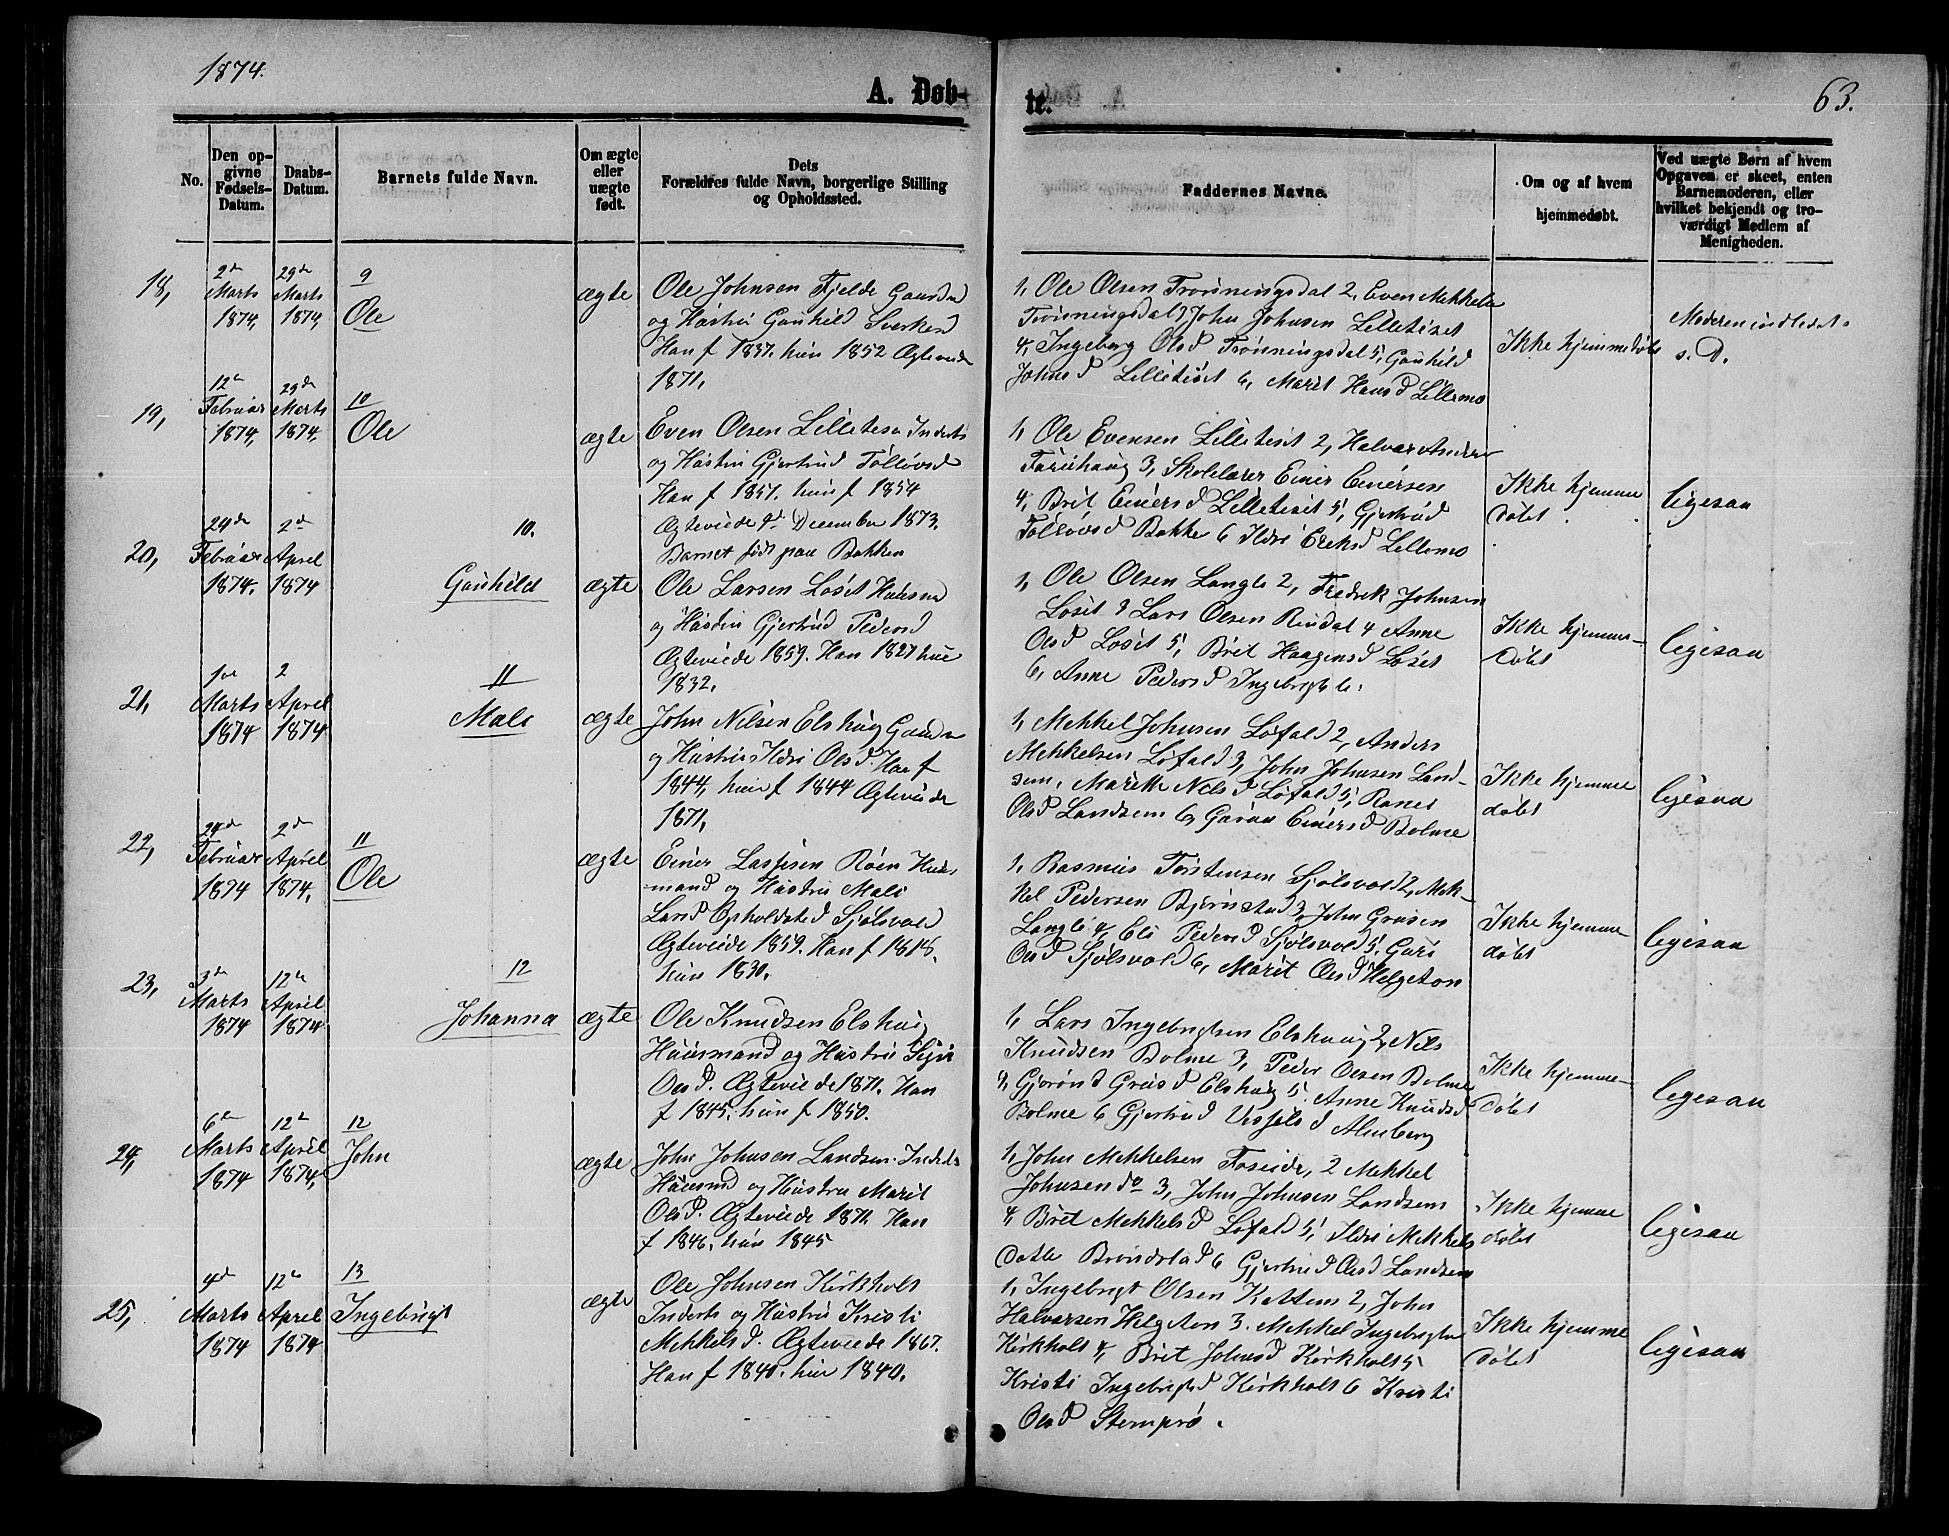 1874.
A. Døb-
te.
63.
No.
Den op-
givne
Fødsels-
Datum.
Daabs-
Datum.
Barnets fulde Navn.
Om ægte
eller
uægte
født.
Dets
Forældres fulde Navn, borgerlige Stilling
og Opholdssted.
Faddernes Navne.
Om og af hvem
hjemmedøbt.
Ved uægte Børn af hvem
Opgaven er skeet, enten
Barnemoderen, eller
hvilket bekjendt og tro-
værdigt Medlem af
Menigheden.
18,
2den
Marts
1874,
29de
Marts
1874,
9
Ole
ægte
Ole Johnsen Fjelde
og Hustru Gunhild Sverksd
Han f 1837. hun 1852 Ægteviede
1871,
1, Ole Olsen Trønningsdal 2, Even Mekkelsen
Trønningsdal, John Johnsen Lilletiset
4, Ingeborg Olsd Trønningsdal 5, Gunhild
Johnsd Lilletiset 6, Marit Hansd Lillemo
Ikke hjemmedøbt
Moderen indledet
s. D.
19,
12te
Februar
1874,
29de
Marts
1874.
10
Ole
ægte
Even Olsen Lilletiset Inderst
og Hustru Gjertrud Tølløvsd
Han f 1851. hun f 1854
Ægteviede 9de December 1873.
Barnet født paa Bakken
1, Ole Evensen Lilletiset 2, Halvar Anders
3, Skolelærer Einer Einersen
4, Brit Einersd Lilletiset 5, Gjertrud
Tølløvsd Bakke 6 Ildri Eriksd Lillemo
Ikke hjemme
døbt
ligesaa
20,
24de
Februar
1874.
2den
April
1874
10.
Gunhild
ægte
Ole Larsen Løset Husmand
og Hustru Gjertrud Pedersd
Ægteviede 1859. Han 1827 hun
1832.
1, Ole Olsen Langli 2, Fredrik Johnsen
Løset 3 Lars Olsen Rindal 4 Anne
Olsd Løset 5, Brit Haagensd Løset
6, Anne Pedersd
Ikke hjemme-
døbt
ligesaa
21,
1ste
Marts
1874
2
April
1874
11
Mali
ægte
John Nilsen Elshaug
og Hustru Ildri Olsd. Han f
1844, hun f 1844 Ægteviede
1871,
1, Mekkel Johnsen Løfald 2, Anders
Mekkelsen Løfald 3, John Johnsen Land-
sem, Marit Nilsd Løfald 5,
Olsd Landsem 6, Guru Einersd Bolme
Ikke hjemme
døbt
ligesaa
22,
24de
Februar
1874
2den
April
1874.
11
Ole
ægte
Einer Røen Hus-
mand og Hustru Mali
Larsd Opholdsted Sjølsvold
Ægteviede 1859. Han f 1818.
hun 1830.
1, Rasmus Torstensen Sjølsvold 2, Mek-
kel Pedersen Bjørnstad 3, John
Langli 4, Eli Pedersd Sjølsvold 5, Guri
Olsd Sjølsvold 6, Marit Olsd Helgeton
Ikke hjemme
døbt
ligesaa
23,
3de
Marts
1874
12te
April
1874
12
Johanna
ægte
Ole Knudsen Elshaug
Huusmand og Hustru
Olsd. Ægteviede 1871. Han
f 1845. hun f 1850.
1, Lars Ingebrigtsen Elshaug 2, Nils
Knudsen Bolme 3, Peder Olsen Bolme
4, Elshaug 5. Anne Knudsd
Bolme 6 Gjertrud
Ikke hjemme-
døbt
ligesaa
24,
6te
Marts
1874
12te
April
1874,
12
John
ægte
John Johnsen Landsem Inderst
Huusmd og Hustru Marit
Olsd. Ægteviede 1871. Han
f 1846. hun 1845
1, John Mekkelsen Foseide, 2 Mekkel
Johnsen do 3, John Johnsen Landsem
4, Brit Mekkelsd Løfald 5, Ildri Mekkels
Datter Brønstad 6 Gjertrud Olsd Landsem
Ikke hjemme
døbt
ligesaa
25,
4de
Marts
1874
12te
April
1874
13
Ingebrigt
ægte
Ole Johnsen Kirkholt
Inderst og Hustru Kristi
Mekkelsd. Ægteviede 1867.
Han f 1840. hun 1840.
1, Ingebrigt Olsen Kattem 2, John
Halvarsen Helgeton 3. Mekkel Ingebrigtsen
Kirkholt 4, Brit Johnsd Kirkholt 5
Kristi Ingebrigtsd Kirkholt 6 Kristi
Olsd
Ikke hjemme
døbt
ligesaa